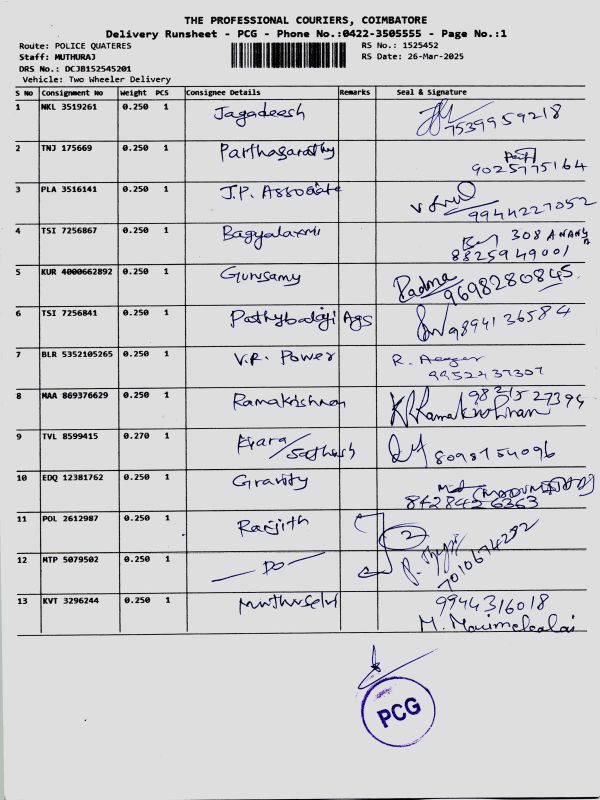 THE PROFESSIONAL COURIERS, COIMBATORE
Delivery Runsheet - PCG - Phone No.:0422-3505555 - Page No.:1
Route: POLICE QUATERES RS No.: 1525452
Staff: MUTHURAJ RS Date: 26-Mar-2025
DRS No.: DCJB152545201
Vehicle: Two Wheeler Delivery
S No Consignment No Weight PCS Consignee Details Remarks Seal & Signature
1 NKL 3519261 0.250 1 Jagadeesh 7539959218
2 TNJ 175669 0.250 1 Parthasarathy 9025775164
3 PLA 3516141 0.250 1 J.P. Associate 9944227052
4 TSI 7256867 0.250 1 Bagyalaxmi 308 ANANYA
8825949001
5 KUR 4000662892 0.250 1 Gurusamy Padma
9698280845
6 TSI 7256841 0.250 1 Pathybalaji Ags 9894136584
7 BLR 5352105265 0.250 1 V.R. Power R.
9952437307
8 MAA 869376629 0.250 1 Ramakrishnan
K R Ramakrishnan
9 TVL 8599415 0.270 1 / Sathish 8098754096
10 EDQ 12381762 0.250 1 Gravity
8428426363
11 POL 2612987 0.250 1 Ranjith 2
12 MTP 5079502 0.250 1 — DO — 7010674292
13 KVT 3296244 0.250 1 Muthuselvi 9944316018
M. Manimekalai
PCG